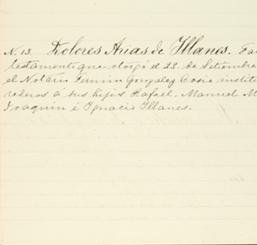 N. 13. Dolores Arias de Illanes. En
testamento que otorgó el 23 de Setiembre
el Notario Fermin Gonzalez Cosio instit
rederos á sus hijos Rafael, Manuel M
Joaquin é Ignacio Illanes.